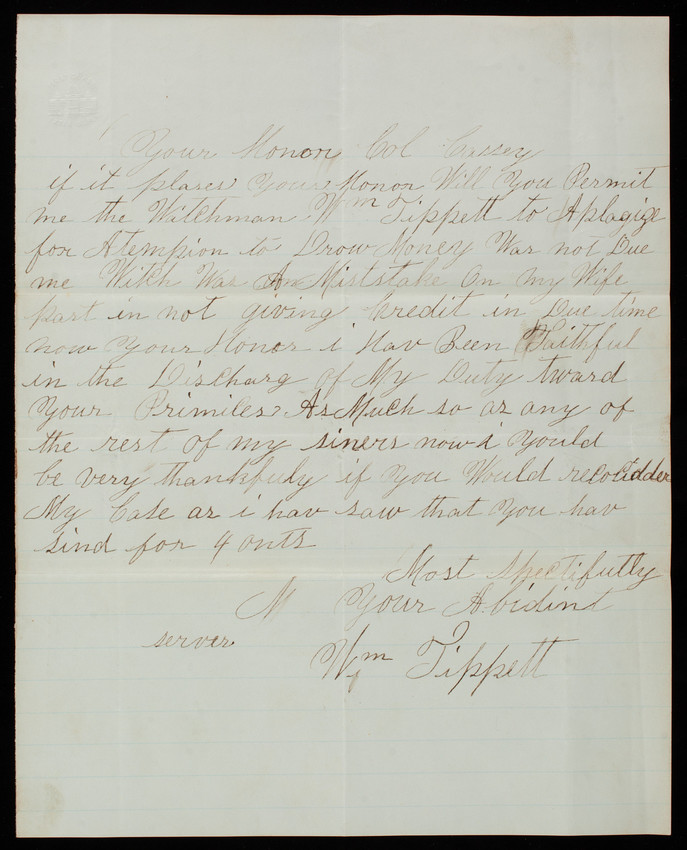 Your Honor Col Cassey
if it plases Your Honor Will You Permit
me the Watchman Wm Tippett to Aplagize
for Atempion to Drow Money Was not Due
me Witch Was An Miststake On my Wife
part in not giving Credit in Due time
now Your Honor i Hav Been Faithful
in the Discharg of My Duty tward
Your Primiles As Much so as any of
the rest of my siners now i would
be very thankfuly if You Would
My Case as i hav saw that You hav
sind for 4 onts
Most spectifully
M Your Abidint
server
Wm Tippett